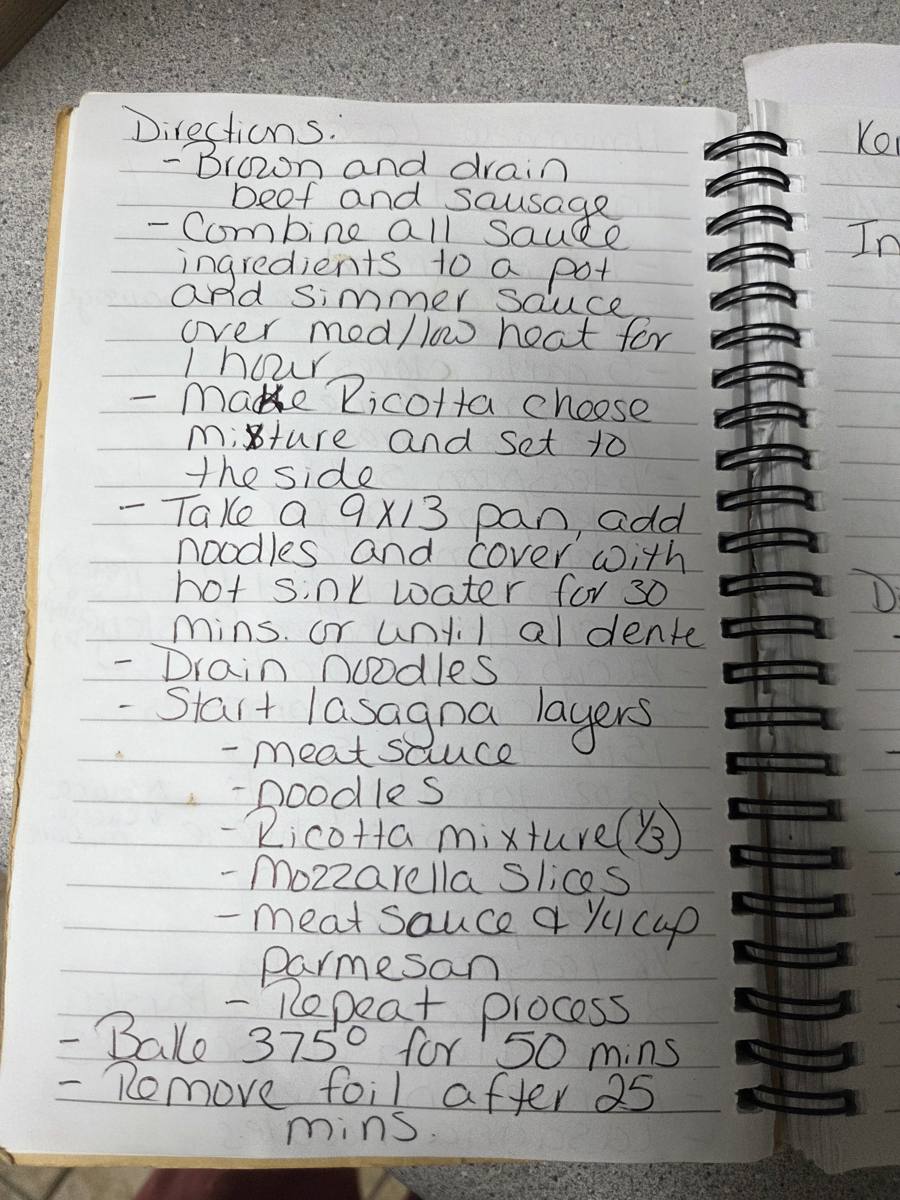 Directions:
- Brown and drain
beef and sausage
- Combine all sauce
ingredients to a pot
and simmer sauce
over med/low heat for
1 hour
- Make Ricotta cheese
mixture and set to
the side
- Take a 9x13 pan, add
noodles and cover with
hot sink water for 30
mins. or until al dente
- Drain noodles
- Start lasagna layers
- meat sauce
- noodles
- Ricotta mixture (1/3)
- Mozzarella slices
- meat sauce & 1/4 cup
parmesan
- Repeat process
- Bake 375° for 50 mins
- Remove foil after 25
mins.